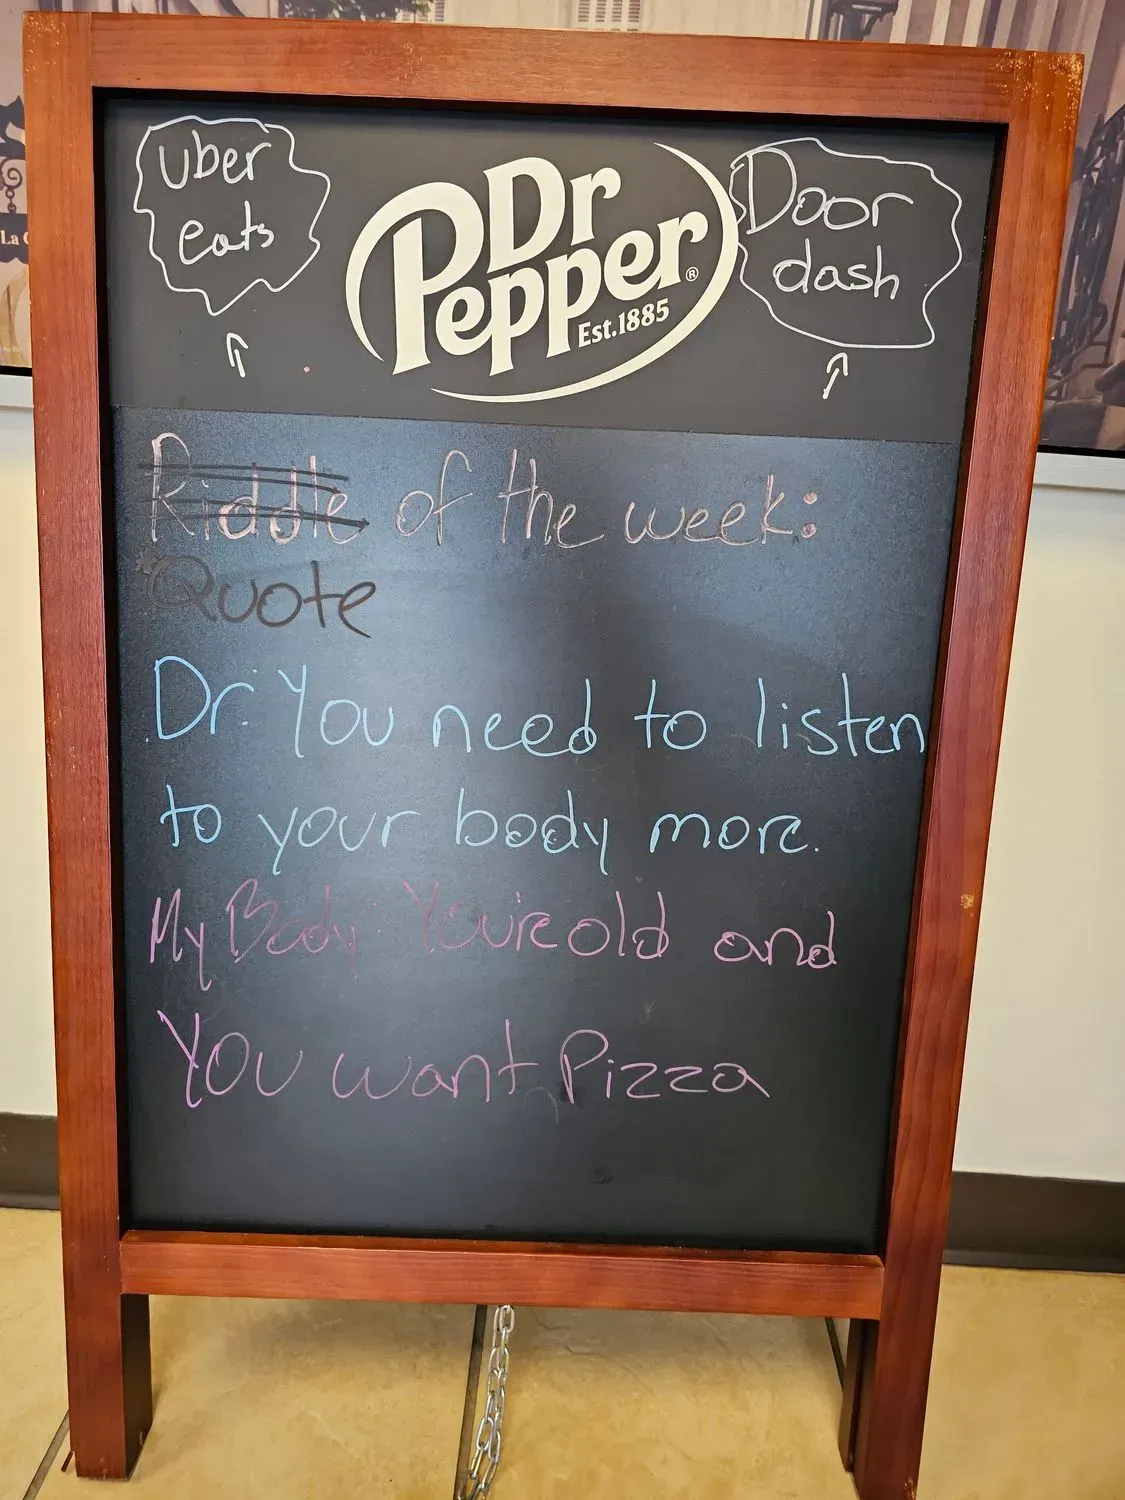 uber
eats
Dr
Pepper®
Est.1885
Door
dash
La
Riddle of the week:
*Quote
Dr: You need to listen
to your body more.
My Body: You're old and
You want Pizza